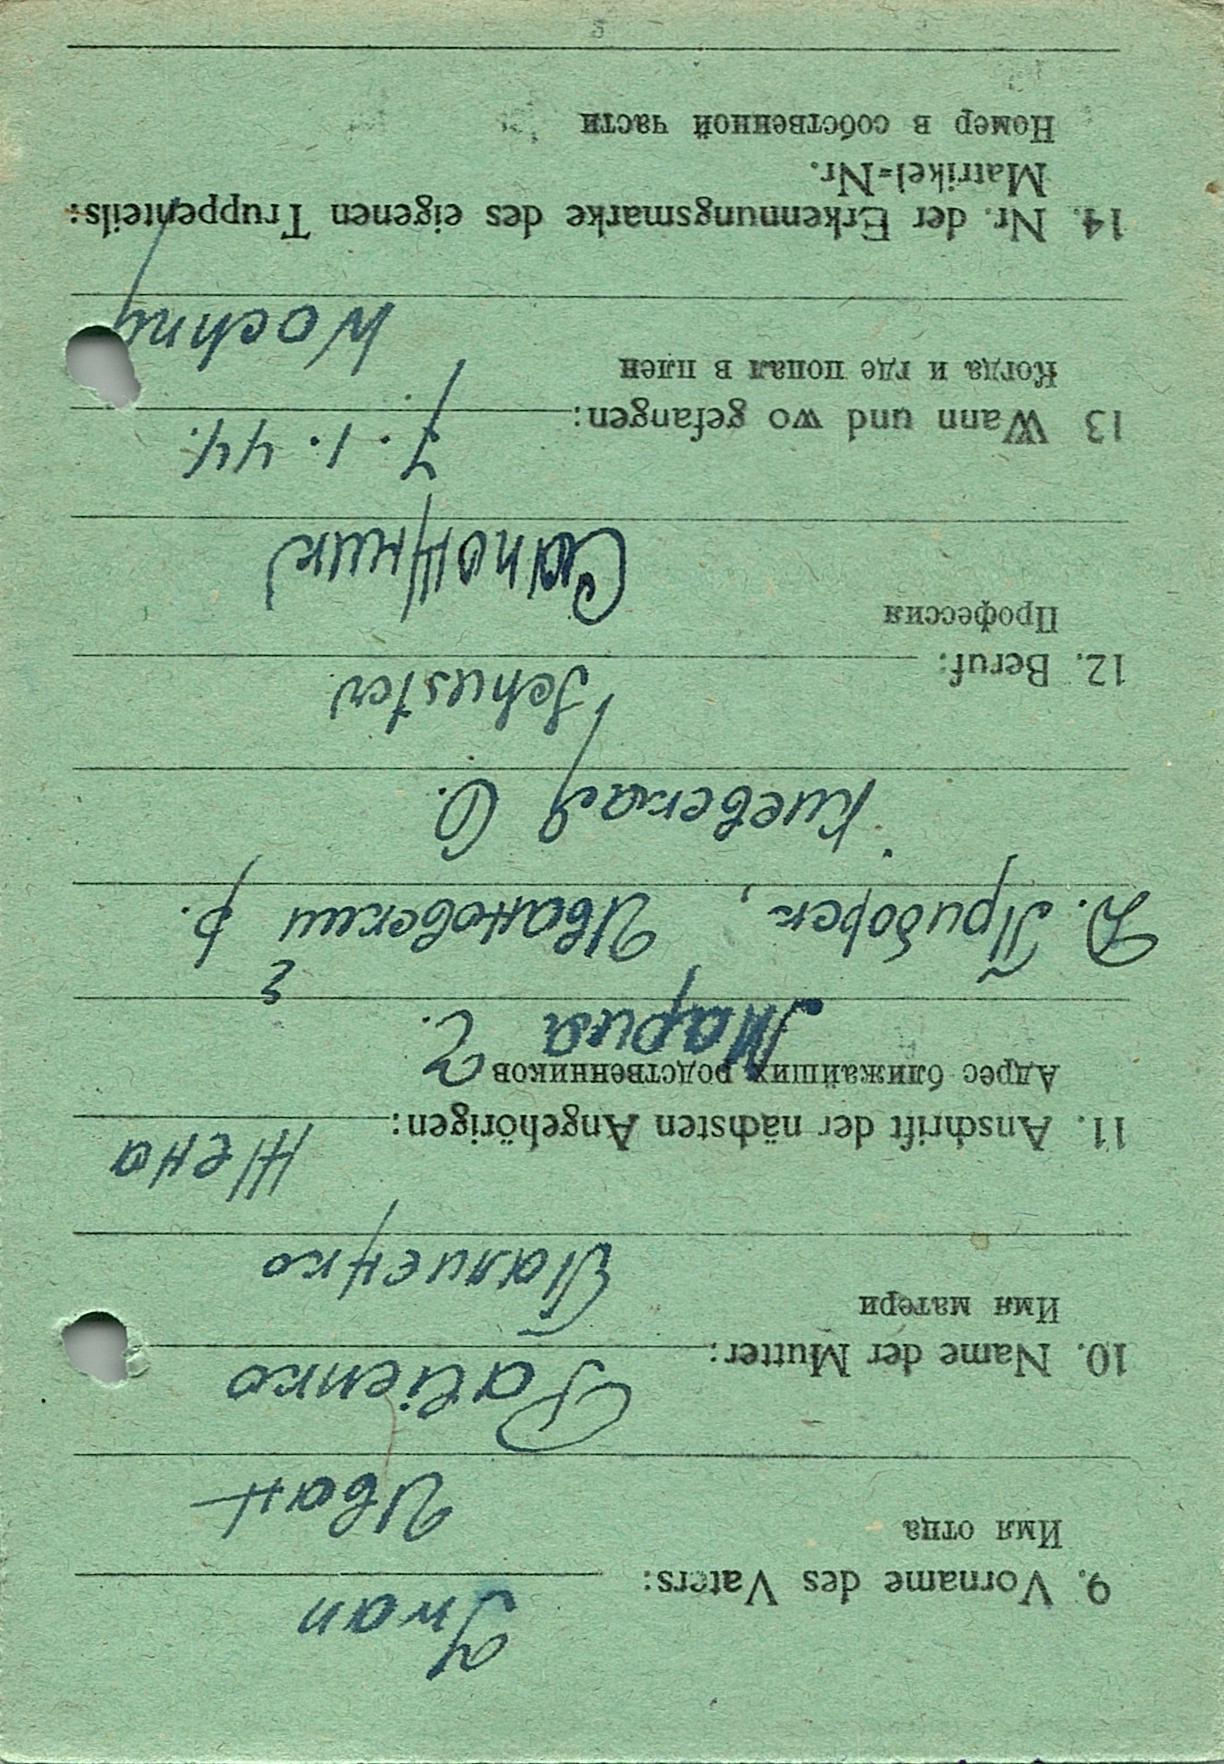 9. Vorname des Vaters: Iwan
Имя отца Иван
10. Name der Mutter: Palienko
Имя матери Палиенко
11. Anschrift der nächsten Angehörigen: Жена
Адрес ближайших родственников Мария Г.
Д. Приборск, Ивановский р.
Киевская О.
12. Beruf: Schuster
Профессия Сапожник
13 Wann und wo gefangen: 7.1.44.
Когда и где попал в плен
14. Nr. der Erkennungsmarke des eigenen Truppenteils:
Matrikel=Nr.
Номер в собственной части